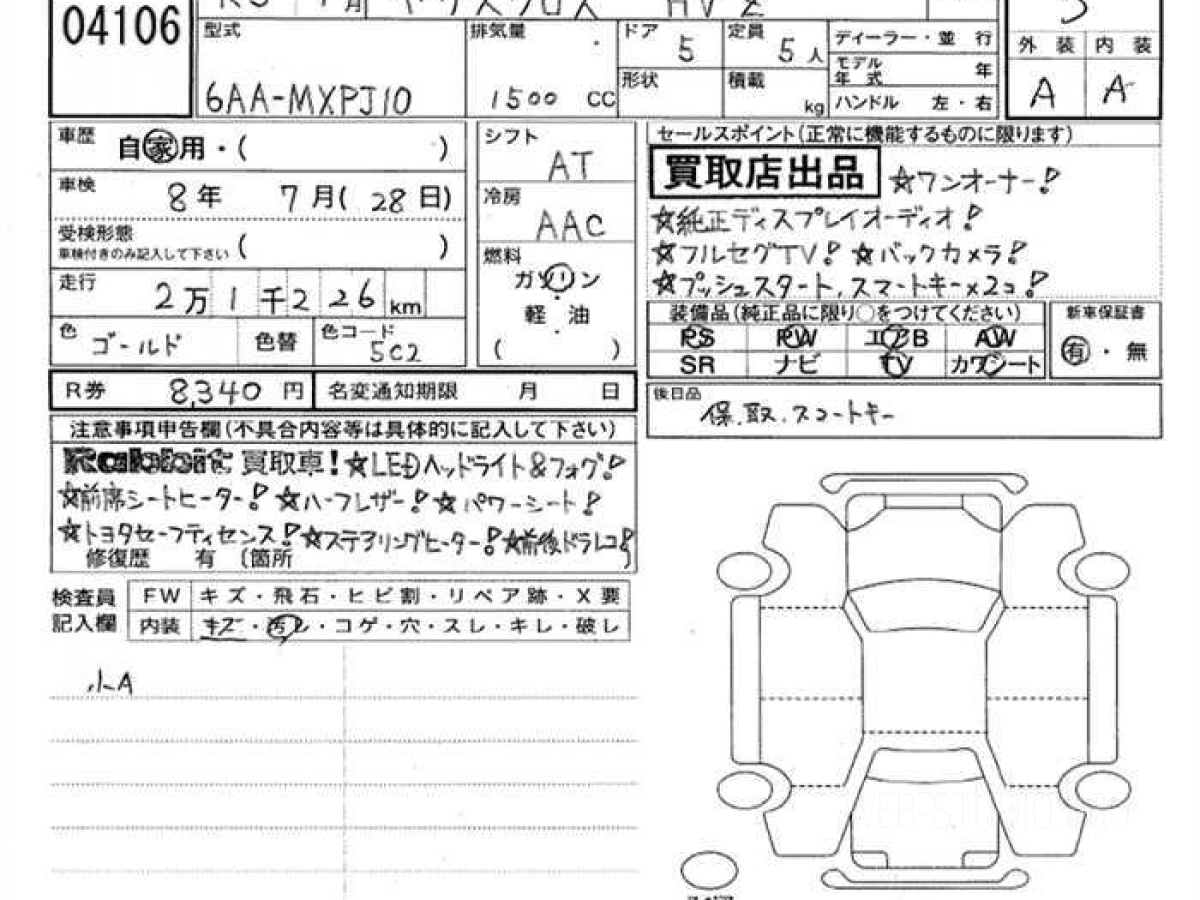 04106
ヤリスクロス HV Z
型式 6AA-MXPJ10
排気量 1500 CC
ドア 5
形状
定員 5 人
積載 kg
ディーラー・並 行
モデル年式 年
ハンドル 左・右
外 装 内 装
A A
車歴 自家用・( )
車検 8年 7月(28日)
受検形態
車検付きのみ記入して下さい ( )
走行 2万1千226km
色 ゴールド 色替 色コード 5C2
シフト AT
冷房 AAC
燃料
ガソリン
・
軽 油
・
( )
セールスポイント(正常に機能するものに限ります)
買取店出品 ☆ワンオーナー!
☆純正ディスプレイオーディオ!
☆フルセグTV! ☆バックカメラ!
☆プッシュスタート、スマートキー×2コ!
装備品(純正品に限り○をつけてください)
PS PW エアB AW
SR ナビ TV カワシート
新車保証書
有・無
R券 8,340 円 名変通知期限 月 日
後日品 保、取、スマートキー
注意事項申告欄(不具合内容等は具体的に記入して下さい)
Rabbit 買取車!☆LEDヘッドライト&フォグ!
☆前席シートヒーター! ☆ハーフレザー! ☆パワーシート!
☆トヨタセーフティセンス! ☆ステアリングヒーター! ☆前後ドラレコ!
修復歴 有 (箇所
検査員記入欄
FW キズ・飛石・ヒビ割・リペア跡・X要
内装 キズ・汚レ・コゲ・穴・スレ・キレ・破し
小A
WEB-STUDIO.PRO